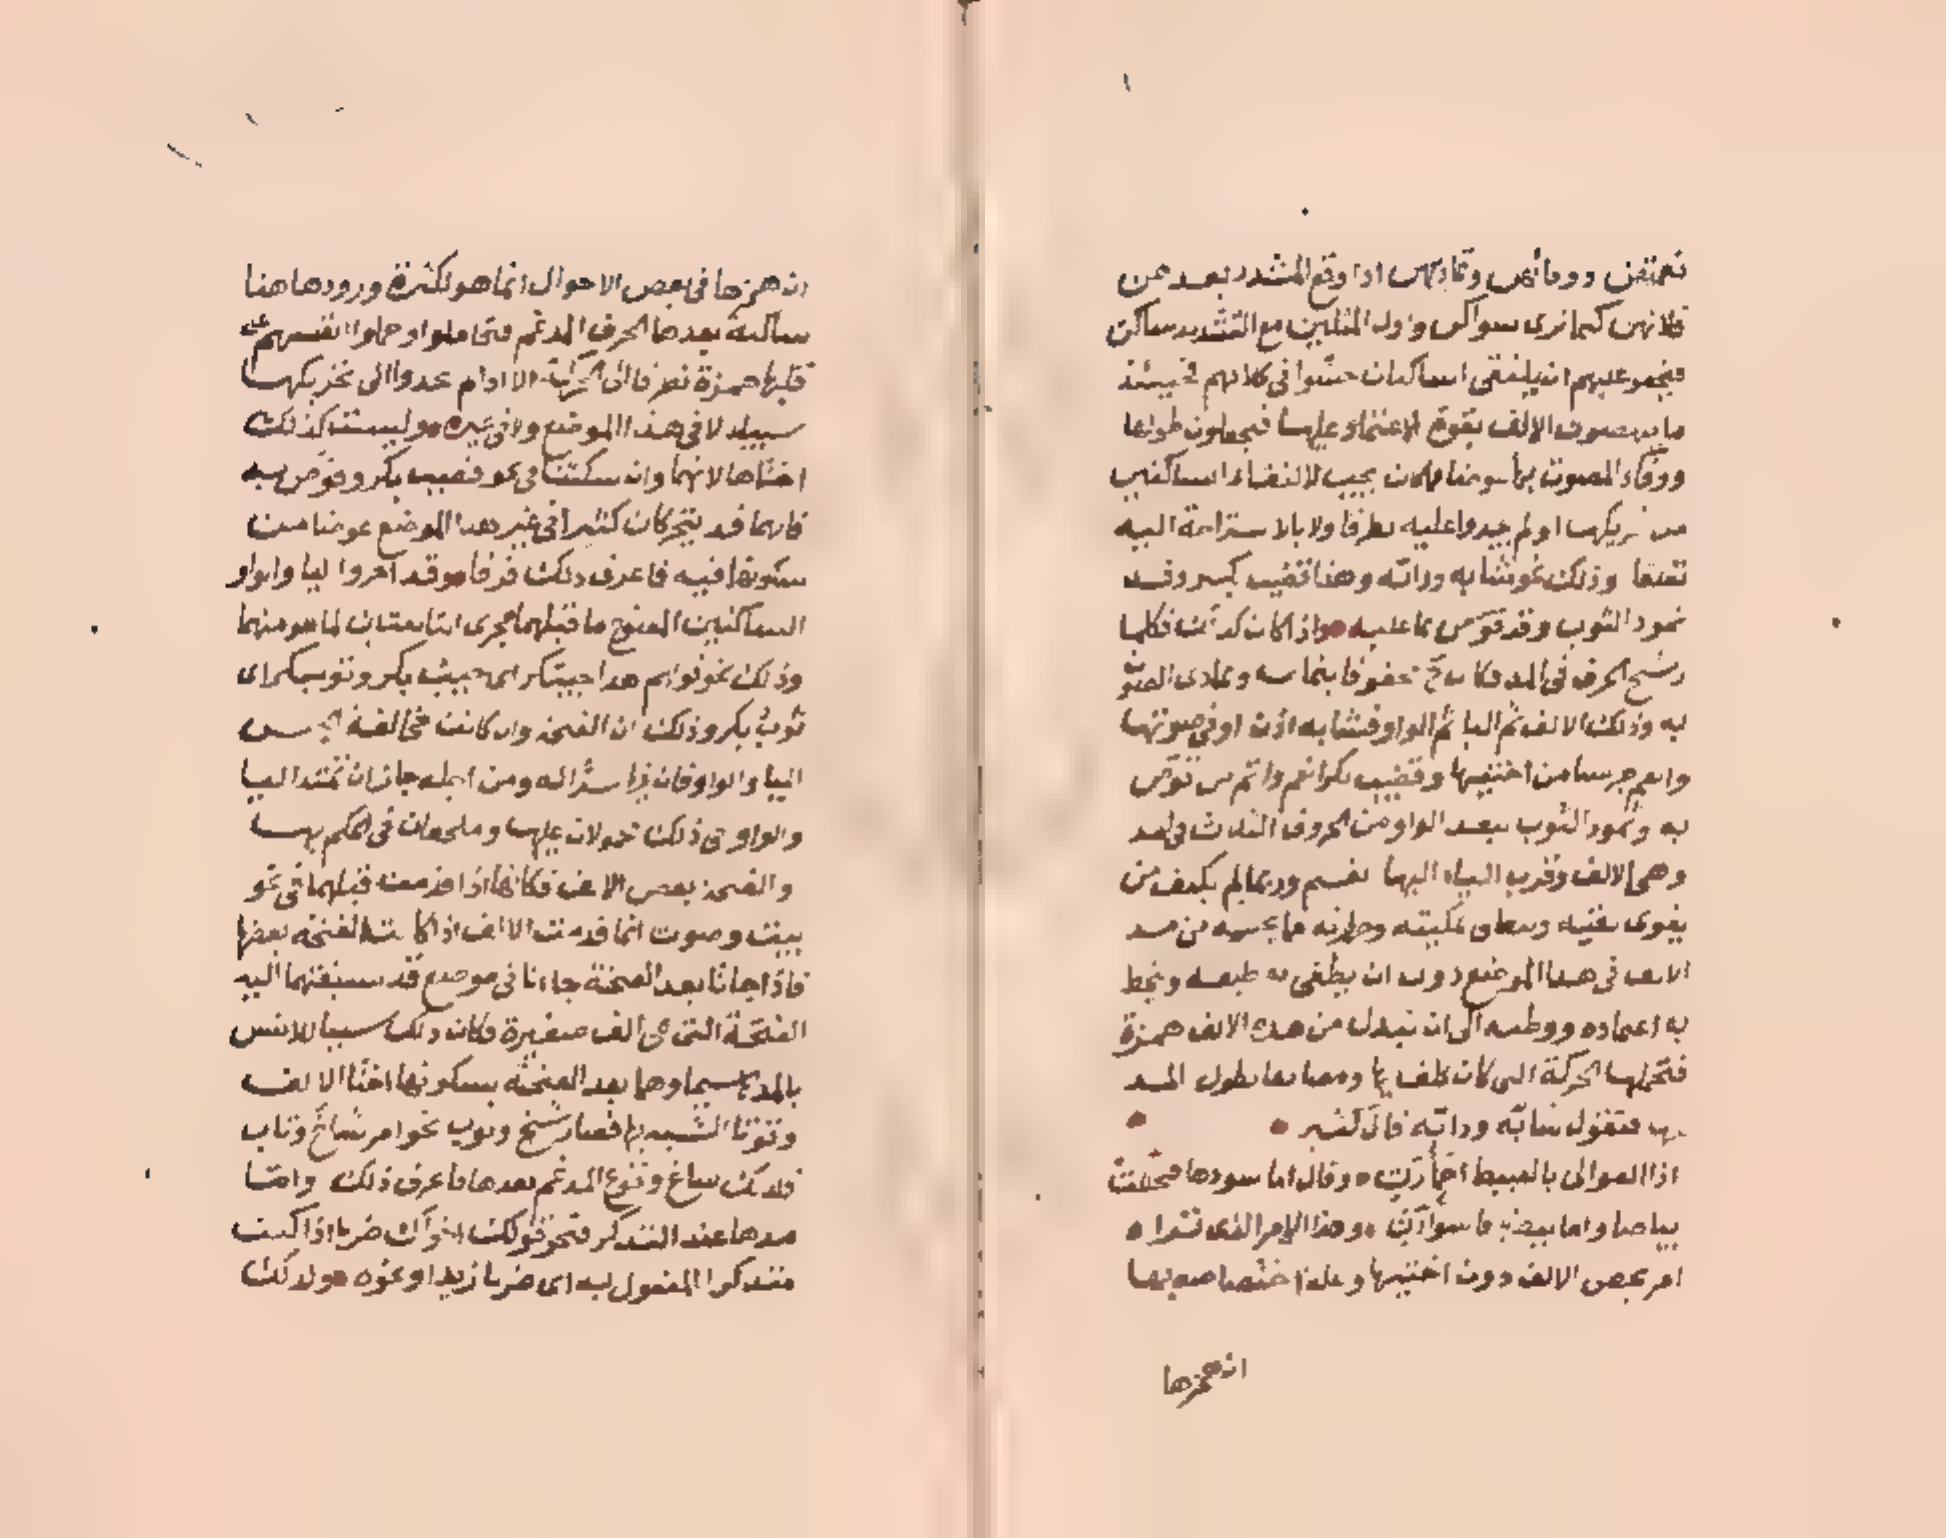 نعمتهن ووفائهن وتماديهن اذا وقع المشدد بعدهن
فلانهن كما ترى سواكن واول المثلين مع التشديد ساكن
فيجفو عليهم ان يلتقى الساكنان حشوا فى كلامهم فحينئذ
ما ينهضون الالف بقوة الاعتماد عليها فيجعلون طولها
ووفاء الصوت بها عوضا مما كان يجب لالتقاء الساكنين
من تحريكها اذ لم يجدوا عليه تطرقا ولا بالاستراحة اليه
تعلقا وذلك نحو شابه ودابه وهذا قضيب بكر وقد
تمود الثوب وقد قوص بما عليه واذا كان كذلك فكلما
رسخ الحرف فى المد كان ح محفوفا بتمامه وتمادى الصوت
به وذلك الالف ثم اليا ثم الواو فشابه اذن اوفى صوتها
وانعم جرسا من اختيها وقضيب بكر انعم واتم من قوص
به وتمود الثوب لبعد الواو من اعرق الثلاث فى المد
وهى الالف وقرب الياء اليها نعم وربما لم يكتف من
تقوى لغته وتعالى تمكينه وجهارته مما تجشمه من مد
الالف فى هذا الموضع دون ان يطغى به طبعه ويتخط
به اعتماده ووطئه الى ان تبدل من هذه الالف همزة
فتحملها الحركة التى كان كلفا بها ومصانعا بطول المد
عنها فتقول شأبه ودأبه قال كثير
اذا العوالى بالعبيط احمأرت وقال اما سودها فتجللت
بياضا واما بيضها فاسوأدت وهذا الامر الذى تراه
امر يخص الالف دون اختيها وعلة اختصاصه بها
ان همزها
ان همزها فى بعض الاحوال انما هو لكثرة ورودها هنا
ساكنة بعدها الحرف المدغم فتحاملوا وحملوا انفسهم على
قلبها همزة تطرقا الى الحركة اذ لم يجدوا الى تحريكها
سبيلا لا فى هذا الموضع ولا فى غيره وليست كذلك
اختاها لانهما وان سكنتا فى نحو قضيب بكر وقوص به
فانهما قد يتحركان كثيرا فى غير هذا الموضع عوضا من
سكونهما فيه فاعرف ذلك فرقا وقد اجروا اليا والواو
الساكنين المفتوح ما قبلهما مجرى التابعتين لما هو منهما
وذلك نحو قولهم هذا جيبكر اى جيب بكر وثوبكر اى
ثوب بكر وذلك ان الفتحة وان كانت مخالفة الجنس
لليا والواو فان فيها سرا له ومن اجله جاز ان تمتد اليا
والواو فى ذلك محمولان عليها وملحقان فى الحكم بها
والفتحة بعض الالف فكانها اذا قدمت قبلهما فى نحو
بيت وصوت انما قدمت الالف اذ كانت الفتحة بعضها
فاذا جاءتا بعد الفتحة جاءتا فى موضع قد سبقتهما اليه
الفتحة التى هى الف صغيرة فكان ذلك سببا للانس
بالمد لاسيما وهما بعد الفتحة بسكونهما اختا الالف
وقويتا الشبه بها فصار شيخ وثوب نحوا من شاخ وثاب
فلذلك ساغ وقوع المدغم بعدهما فاعرف ذلك واما
مدها عند التذكر فنحو قولك اخواك ضربا اذا كنت
متذكرا المفعول به اى ضربا زيدا ونحوه وكذلك